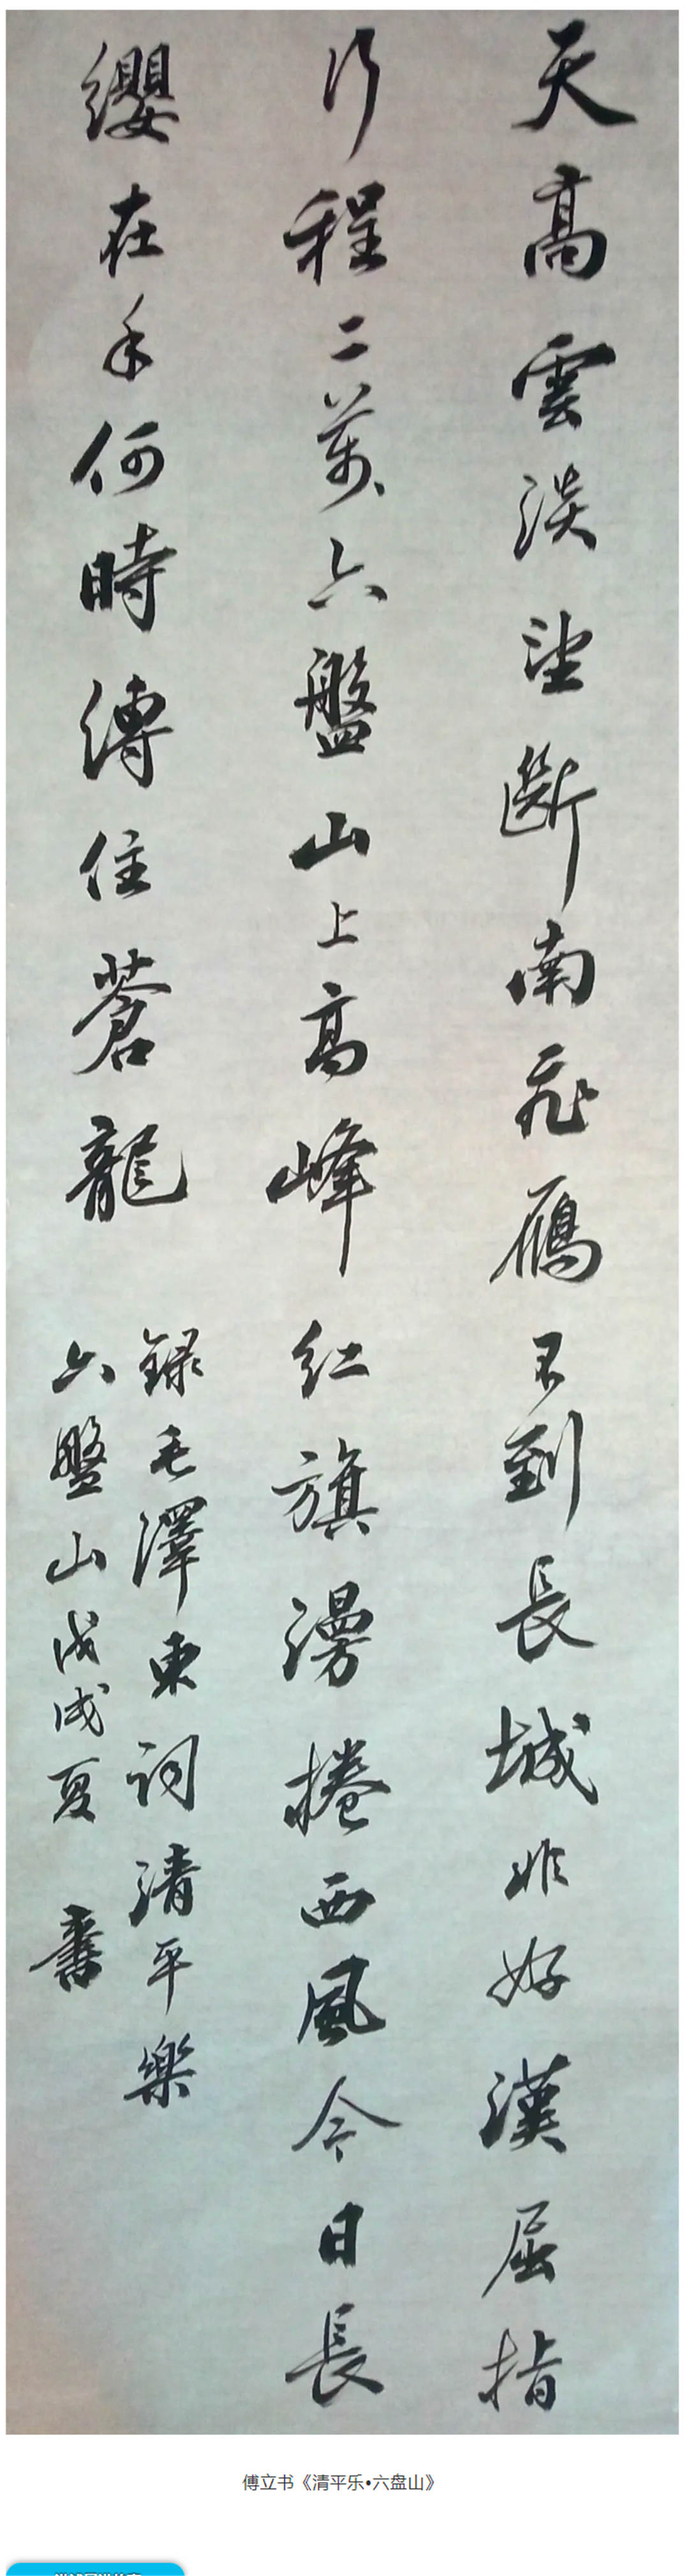 天高雲淡望斷南飛雁不到長城非好漢屈指
行程二萬六盤山上高峰紅旗漫捲西風今日長
纓在手何時縛住蒼龍
錄毛澤東詞清平樂
六盤山戊戌夏 書
傅立书《清平乐•六盘山》